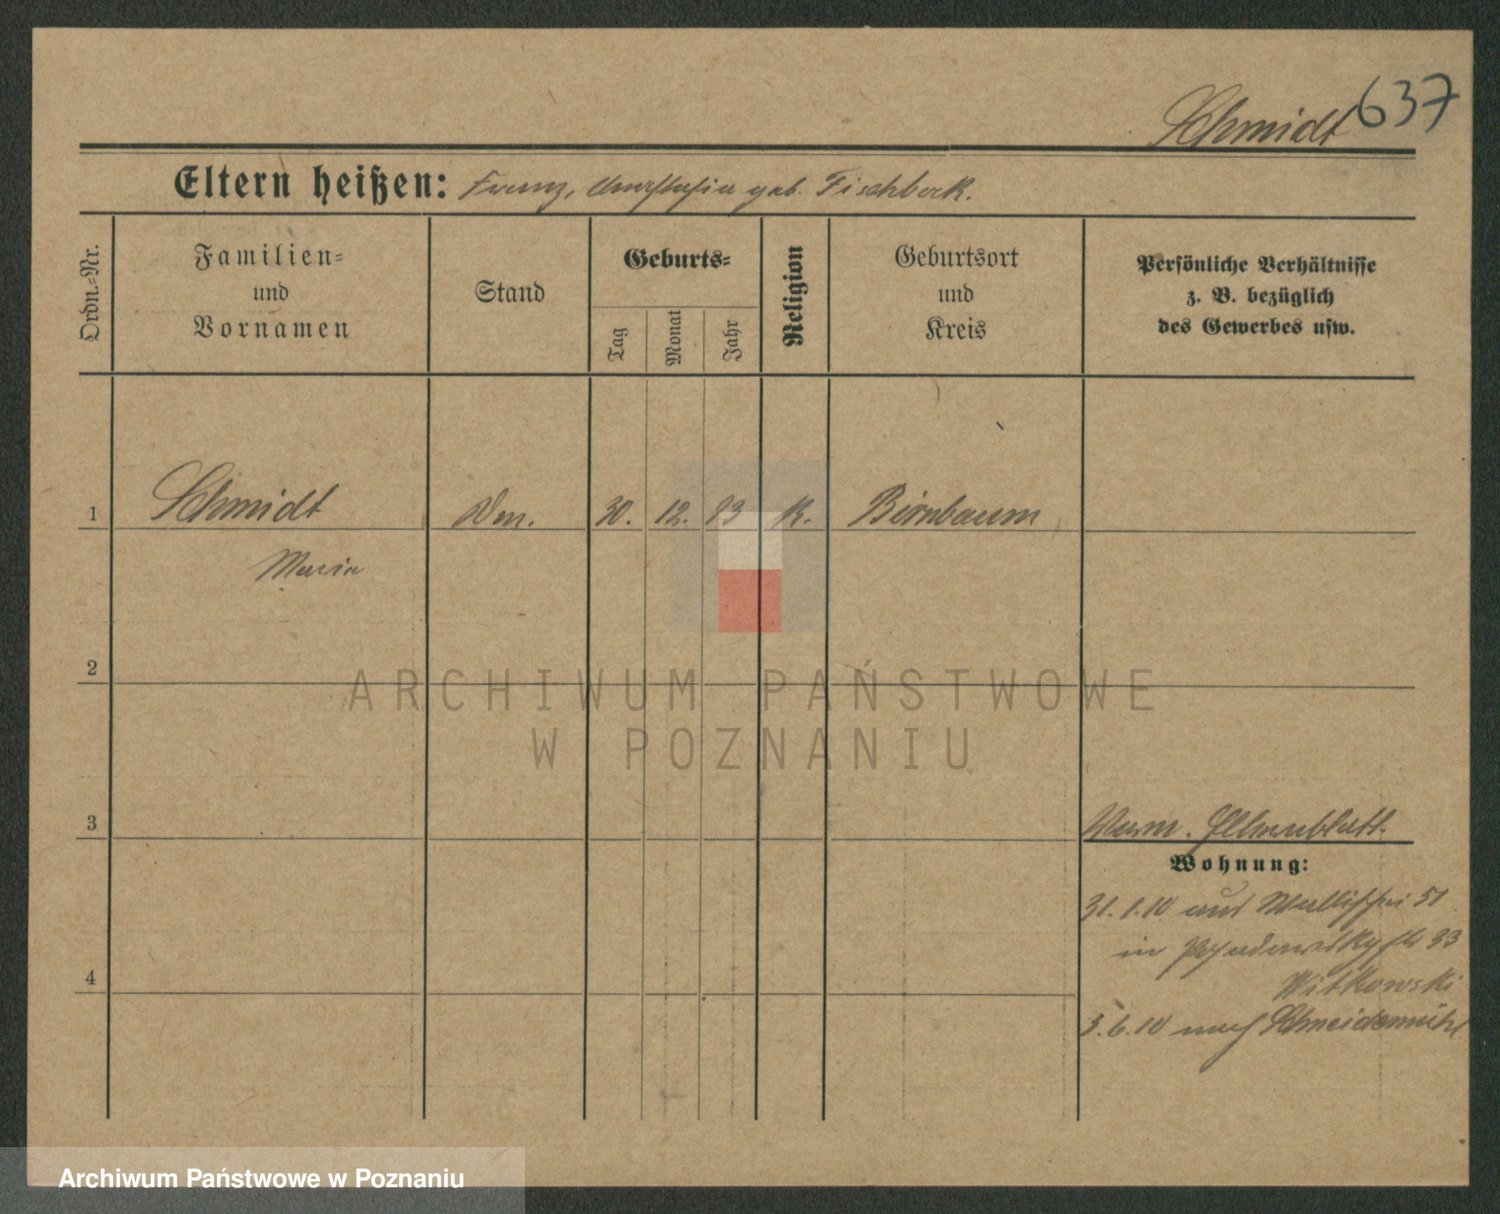 637
Schmidt
Eltern heißen: Franz, Anastasia geb. Fischbock.
Ordn.-Nr.
Familien-
und
Vornamen
Stand
Geburts-
Tag
Monat
Jahr
Religion
Geburtsort
und
Kreis
Persönliche Verhältnisse
z. B. bezüglich
des Gewerbes usw.
1 Schmidt 30. 12. 83 K. Birnbaum
Maria
2
3
Elternblatt.
Wohnung:
31.1.10 aus Wallischei 51
in 33
4
Witkowski
3.6.10 nach Schneidemühl
ARCHIWUM PAŃSTWOWE
W POZNANIU
Archiwum Państwowe w Poznaniu